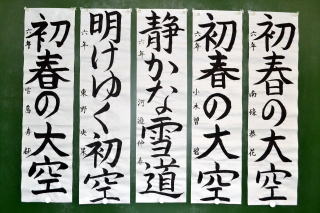 初春の大空
六年
初春の大空
六年
静かな雪道
六年
明けゆく初空
六年
初春の大空
六年